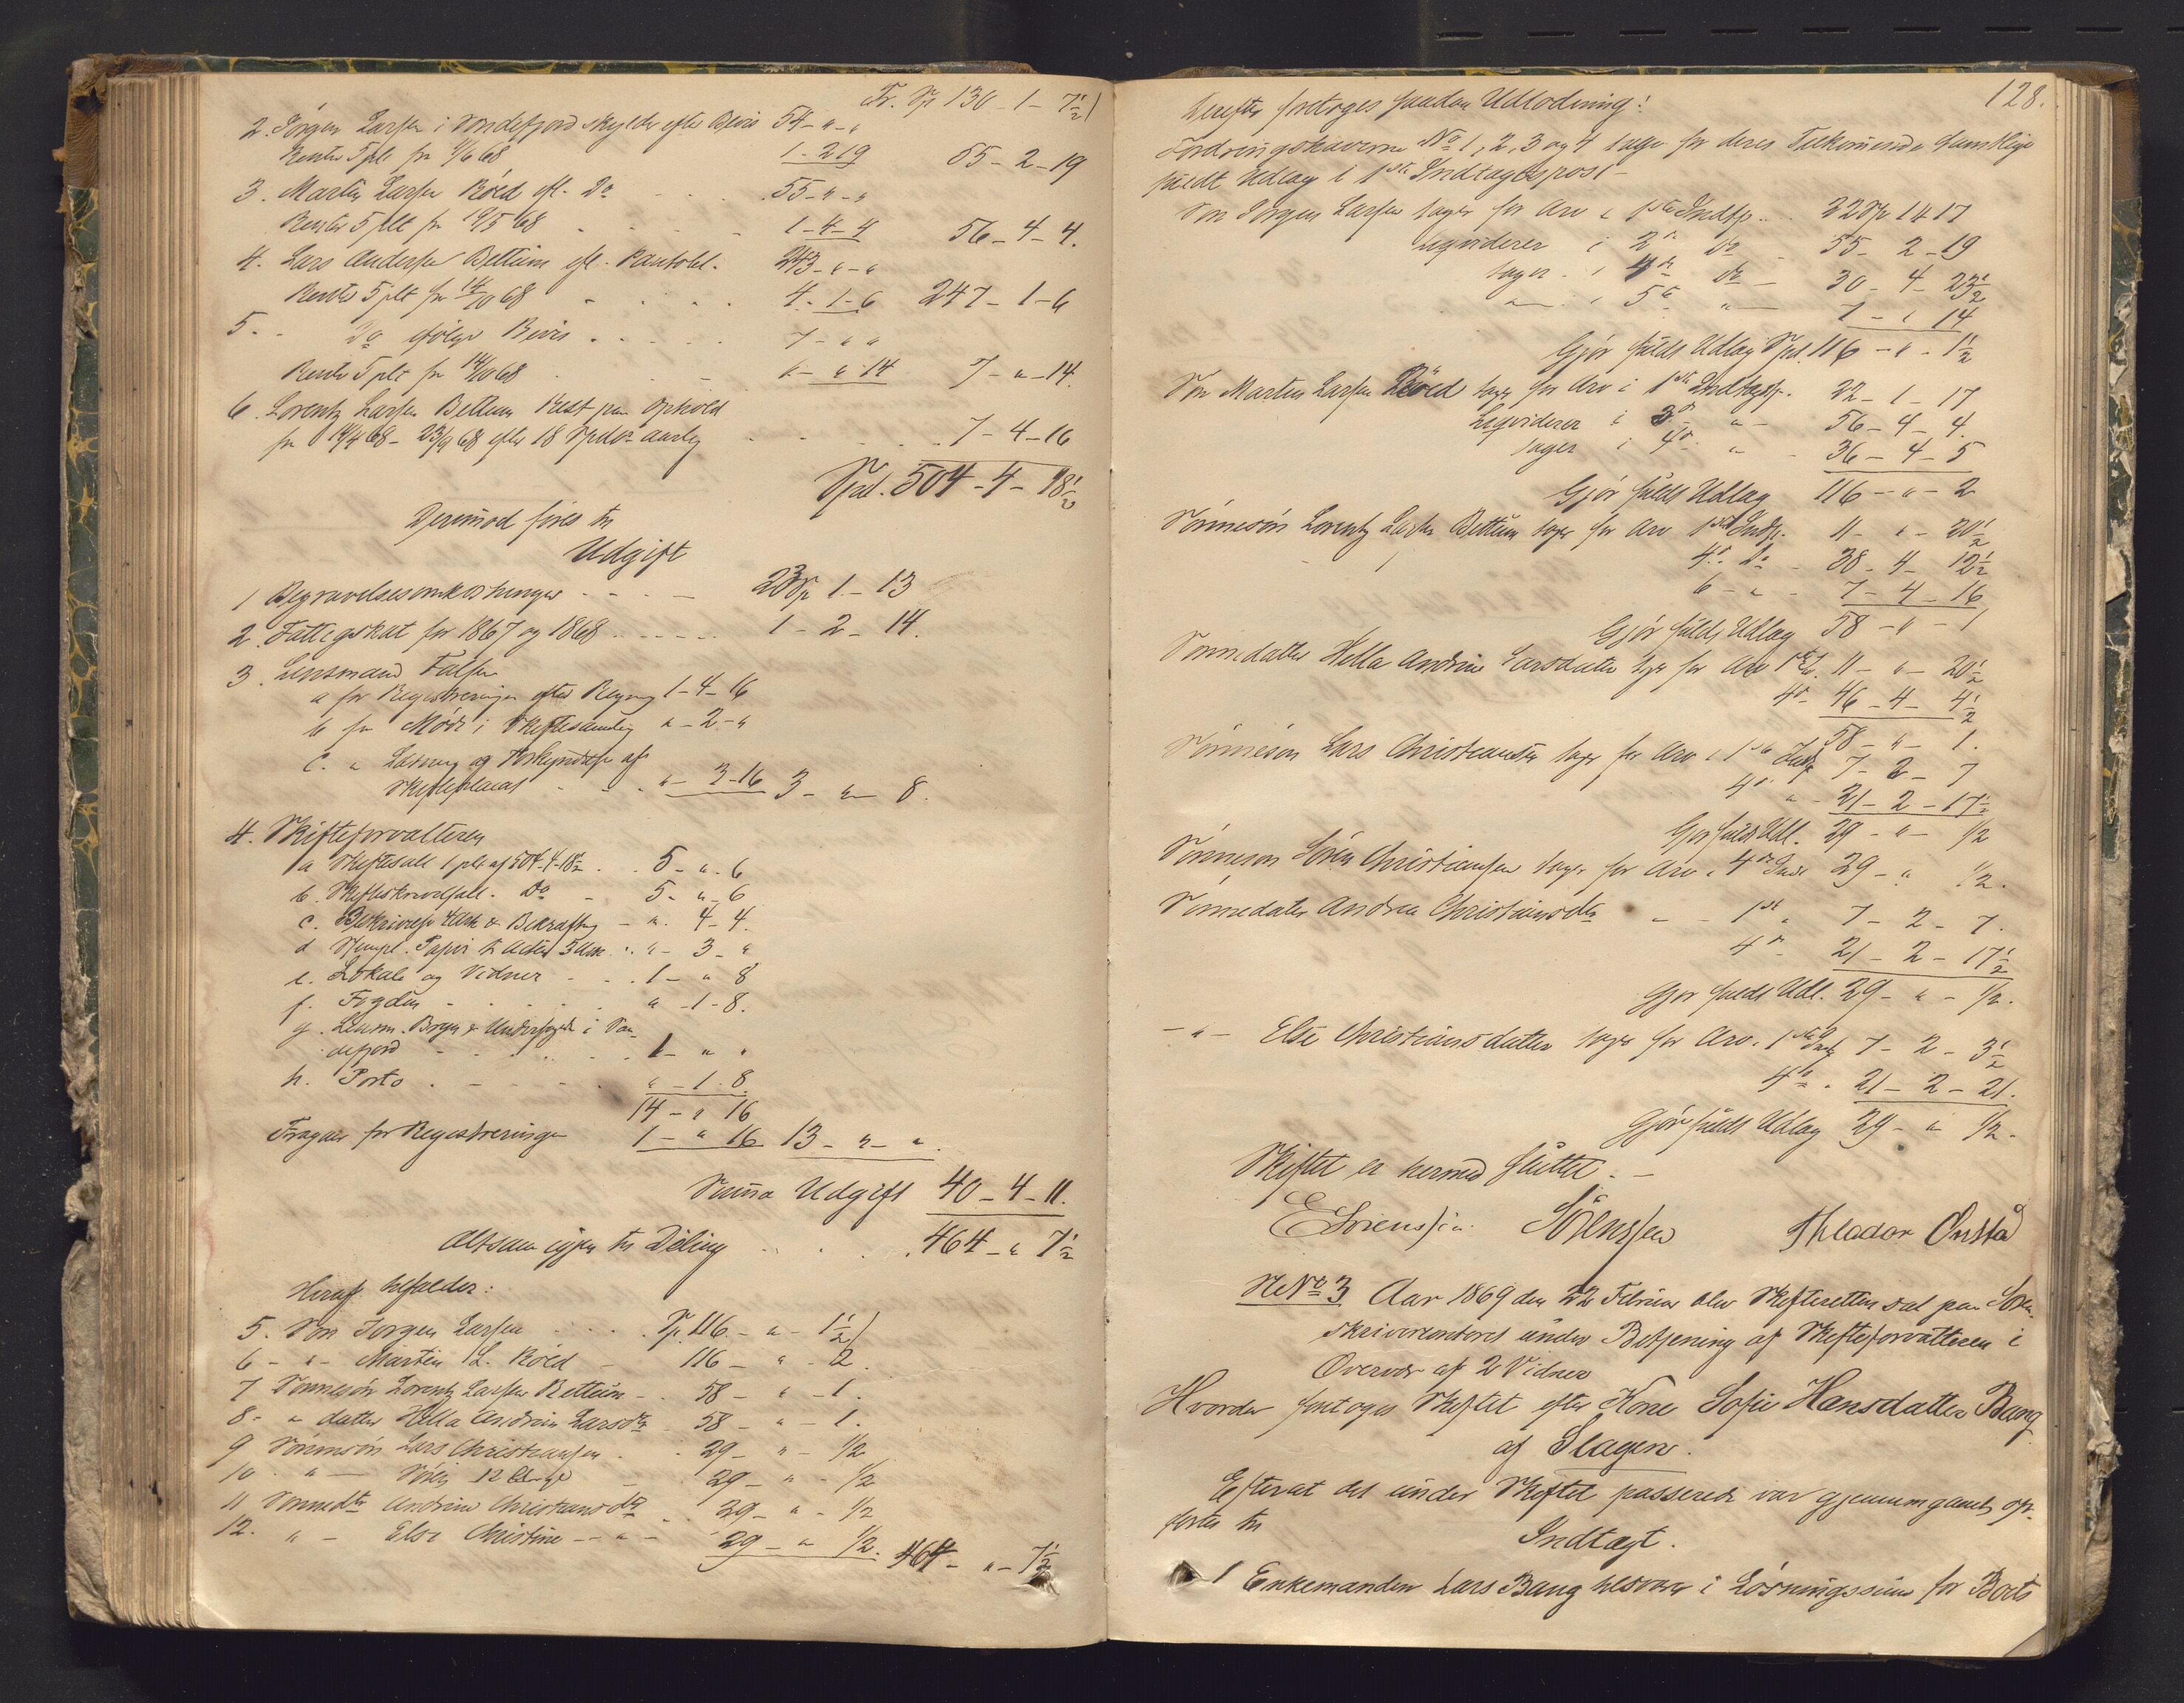 Tr. Sp 130 - 1 - 7½
2. Jörgen Larsen i Sandefjord skylder efter Bevis 54 - " - "
Renter 5 pCt fra 11/6 68 1 - 2 19 55 - 2 - 19
3. Martin Larsen Röed efl. Do 55 - " - "
Renter 5 pCt fra 19/5 68 1 - 4 - 4 56 - 4 - 4.
4. Lars Andersen Bettum efl. Pantobl. 243 - " - "
Renter 5 pCt fra 14/10 68 4 - 1 - 6 247 - 1 - 6
5. - Do ifölge Bevis 7 - " "
Renter 5 pCt fra 14/10 68 " - " 14 7 - " - 14.
6. Lorentz Larsen Bettum Rest paa Ophold
fra 14/4 68 - 23/9 68 efter 18 Spdlr aarlig 7 - 4 - 16
Spd. 504 - 4 - 18½
Derimod föres til
Udgift
1 Begravelsesomkostninger 23 Sp 1 - 13
2. Fattigskat for 1867 og 1868 1 - 2 - 14.
3. Lensmand Falsen
a for Registreringen efter Regning 1 - 4 - 16
b for Möde i Skiftesamling " - 2 - "
c. " Læsning og Forkyndelse af
Skifteplacat " - 3 - 16 3 - " - 8.
4. Skifteforvalteren
a Skiftesall 1 pCt af 504-4-18½ 5 - " - 6
b. Skifteskriversall. Do 5 - " - 6
c. Beskrivelse & Bekræftg - " 4 - 4.
d Stempl. Papir til Acten " - 3 - "
e. Lokale og Vidner 1 - " 8
f. Fogden " - 1 - 8.
g. Lensm. Bryn & Undersögelse i San-
defjord 1 - " "
h. Porto " - 1 - 8.
14 - " 16
Fragaar for Registreringen 1 - " 16 13 - " - ".
Summa Udgift 40 - 4 - 11.
Altsaa igjen til Deling 464 - " 7½
Heraf tilfalder:
5. Sön Jörgen Larsen Sp. 116 - " - 1½
6 - " - Martin L. Röed 116 - " - 2.
7 Sönnesön Lorentz Larsen Bettum 58 - " - 1.
8 - " datter Hella Andrine Larsdtr 58 - " - 1.
9 Sönnesön Lars Christiansen 29 - " - ½
10 " - Sören 29 - " - ½
11 Sönnedtr Andrine Christiansdtr 29 - " - ½
12. " - Else Christine - " - 29 - " ½. 464 - " - 7½
128.
Derefter foretoges saadan Udlodning:
Fordringshaverne No 1, 2, 3 og 4 tager for deres Tilkommende samtlige
fuldt Udlæg i 1ste Indtægtspost -
Sön Jörgen Larsen tager for Arv i 1ste Indtp. 22 Sp 1 17
liqviderer i 2n Do 55 - 2 - 19
tager i 4de do 30 - 4 - 23½
" i 5te " 7 - " 14
Gjör fuldt Udlæg Spd. 116 - " - 1½
Sön Martin Larsen Röed tager for Arv i 1ste Indtægtsp. 22 - 1 - 17
Liqviderer i 3die " 56 - 4 - 4.
tager i 4de " 36 - 4 - 5
Gjör fuldt Udlæg 116 - " - 2
Sönnesön Lorentz Larsen Bettum tager for Arv 1ste Indtp. 11 - " - 20½
4de do 38 - 4 - 12½
6 - " 7 - 4 - 16
Gjör fuldt Udlæg 58 - " - 1
Sönnedatter Hella Andrine Larsdatter tager for Arv 1ste 11 - " - 20½
4de 46 - 4 - 4½
58 - " - 1.
Sönnesön Lars Christiansen tager for Arv i 1ste Indt 7 - 2 - 7
4de " 21 - 2 - 17½
Gjör fuldt Udl. 29 - " - ½
Sönnesön Sören Christiansen tager for Arv i 4de Indt 29 - " ½.
Sönnedatter Andrea Christiansdtr " - 1ste " 7 - 2 - 7.
4de 21 - 2 - 17½
Gjör fuldt Udl. 29 - " - ½.
- " - Else Christiansdatter tager for Arv i 1ste Indt 7 - 2 - 3½
4de " 21 - 2 - 21.
Gjör fuldt Udlæg 29 - " ½.
Skiftet er hermed sluttet. -
E Sörenssen. Theodor Onstad
No 3 Aar 1869 den 22 Februar blev Skifteretten sat paa Soren-
skrivercontoret under Betjening af Skifteforvalteren i
Overvær af 2 Vidner
Hvorder foretoges Skiftet efter Kone Sofie Hansdatter Bang
af Slagen.
Efterat det under Skiftet passerede var gjennemgaaet op-
førtes til
Indtægt.
1 Enkemanden Lars Bang tilsvarer i Løsningssum for Boets